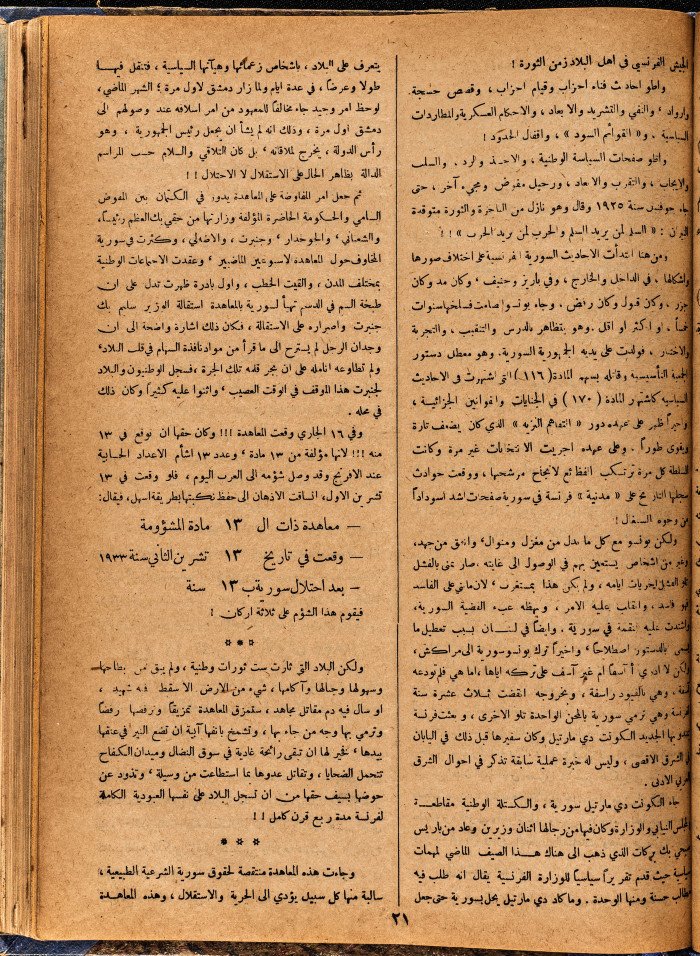 الجيش الفرنسي في اهل البلاد زمن الثورة !
واطو احاديث فناء احزاب وقيام احزاب ، وقصص حسجة.
وارواد ، والنفي والتشريد والابعاد ، والاحكام العسكرية والمطاردات
السياسية . و« القوائم السود » ، واقفال الحدود !
واطو صفحات السياسة الوطنية ، والاخذ والرد . والسلب
والايجاب ، والتقرب والابعاد ، ورحيل مفوض ومجيء آخر ، حتى
جاء جوفنيل سنة ١٩٢٥ وقال وهو نازل من الباخرة والثورة متوقدة
النيران : « السلم لمن يريد السلم والحرب لمن يريد الحرب » ! !
ومن هنا ابتدأت الاحاديث السورية الفرنسية على اختلاف صورها
واشكالها ، في الداخل والخارج ، وفي باريز وجنيف ، وكان مد وكان
جزر ، وكان قبول وكان رفض . وجاء بونسو صامت فسلخها سنوات
خمساً ، او اكثر او اقل . وهو يتظاهر بالدرس والتنقيب ، والتجربة
والاختبار ، فولدت على يديه الجمهورية السورية . وهو معطل دستور
الجمعية التأسيسية وقاتله بسهم المادة ( ١١٦ ) التي اشتهرت في الاحاديث
السياسية كاشتهار المادة ( ١٧٠ ) في الجنايات والقوانين الجزائية ،
واخيراً ظهر على عهده دور « التفاهم النزيه » الذي كان يضعف تارة
ويقوى طوراً . وعلى عهده اجريت الانتخابات غير مرة وكانت
السلطة كل مرة ترتكب الفظائع لانجاح مرشحيها ، ووقعت حوادث
سجلها التاريخ على « مدنية » فرنسة في سورية صفحات اشد اسوداداً
من وجوه السنغال !
ولكن بونسو مع كل ما بدل من مغزل ومنوال ، وانفق من جهد،
وغير من اشخاص يستعين بهم في الوصول الى غايته . صار يمنى بالفشل
تلو الفشل اخريات ايامه ، ولم يكن هذا بمستغرب ، لان ما بني على الفاسد
فهو فاسد . وانقلب عليه الامر ، وبهظه عبء القضية السورية،
واشتدت عليه النقمة في سورية . وايضاً في لبنان بسبب تعطيل ما
يسمى بالدستور اصطلاحاً ، واخيراً ترك بونسو سورية الى مراكش،
ولكن لا ادري أ آسفاً ام غير آسف على تركه اياها ، اما هي فلم تودعه
آسفة . وهي بالقيود راسفة ، وبخروجه انقضت ثلاث عشرة سنة
لفرنسة وهي ترمي سورية بالمحن الواحدة تلو الاخرى ، وبعثت فرنسة
مندوبها الجديد الكونت دي مارتيل وكان سفيرها قبل ذلك في اليابان
في الشرق الاقصى ، وليس له خبرة عملية سابقة تذكر في احوال الشرق
العربي الادنى .
جاء الكونت دي مارتيل سورية ، والكتلة الوطنية مقاطعة
المجلس النيابي والوزارة وكان فيها من رجالها اثنان وزيرين وعاد من باريس
صبحي بك بركات الذي ذهب الى هناك هذا الصيف الماضي لمهمات
سياسية حيث قدم تقريراً سياسياً للوزارة الفرنسية يقال انه طلب فيه
مطالب حسنة ومنها الوحدة . وما كاد دي مارتيل يحل بسورية حتى جعل
يتعرف على البلاد ، باشخاص زعمائها وهيآتها السياسية ، فتنقل فيها
طولا وعرضاً ، في عدة ايام ولما زار دمشق لاول مرة ؛ الشهر الماضي،
لوحظ امر وحيد جاء مخالفاً للمعهود من امر اسلافه عند وصولهم الى
دمشق اول مرة ، وذلك انه لم يشأ ان يجعل رئيس الجمهورية ، وهو
رأس الدولة ، يخرج لملاقاته ، بل كان التلاقي والسلام حسب المراسم
الدالة بظاهر الحال على الاستقلال لا الاحتلال ! !
ثم جعل امر المفاوضة على المعاهدة يدور في الكتمان بين المفوض
السامي والحكومة الحاضرة المؤلفة وزارتها من حقي بك العظم رئيساً،
والشعباني ، والخوجدار ، وجنبرت ، والاضه لي ، وكثرت في سورية
المخاوف حول المعاهدة لاسبوعين الماضيين ، وعقدت الاجتماعات الوطنية
بمختلف المدن ، والقيت الخطب ، واول بادرة ظهرت تدل على ان
طبخة السم في الدسم تهيأ لسورية بالمعاهدة استقالة الوزير سليم بك
جنبرت واصراره على الاستقالة ، فكان ذلك اشارة واضحة الى ان
وجدان الرجل لم يسترح الى ما قرأ من مواد نافذة السهام في قلب البلاد،
ولم تطاوعه انامله على ان يجر قلمه تلك الجرة ، فسجل الوطنيون والبلاد
لجنبرت هذا الموقف في الوقت العصيب ، واثنوا عليه كثيراً وكان ذلك
في محله .
وفي ١٦ الجاري وقعت المعاهدة !!! وكان حقها ان توقع في ١٣
منه !!! لانها مؤلفة من ١٣ مادة ، وعدد ١٣ اشأم الاعداد الحسابية
عند الافرنج وقد وصل شؤمه الى العرب اليوم ، فلو وقعت في ١٣
تشرين الاول، انساقت الاذهان الى حفظ نكبتها بطريقة اسهل، فيقال:
— معاهدة ذات ال ١٣ مادة المشؤومة
— وقعت في تاريخ ١٣ تشرين الثاني سنة ١٩٣٣
— بعد احتلال سورية ب ١٣ سنة
فيقوم هذا الشؤم على ثلاثة اركان !
* * *
ولكن البلاد التي ثارت ست ثورات وطنية ، ولم يبق من بطاحها
وسهولها وجبالها وآكامها ، شيء من الارض الا سقط فيه شهيد ،
او سال فيه دم مقاتل مجاهد ، ستمزق المعاهدة تمزيقاً وترفضها رفضاً
وترمي بها وجه من جاء بها ، وتشمخ بانفها آبية ان تضع النير في عنقها
بيدها ، فخير لها ان تبقى رائحة غادية في سوق النضال وميدان الكفاح
تتحمل الضحايا ، وتقاتل عدوها بما استطاعت من وسيلة ، وتذود عن
حوضها بسيف حقها من ان تسجل البلاد على نفسها العبودية الكاملة
لفرنسة مدة ربع قرن كامل ! !
* * *
وجاءت هذه المعاهدة منتقصة لحقوق سورية الشرعية الطبيعية ،
سالبة منها كل سبيل يؤدي الى الحرية والاستقلال ، وهذه المعاهدة
٢١